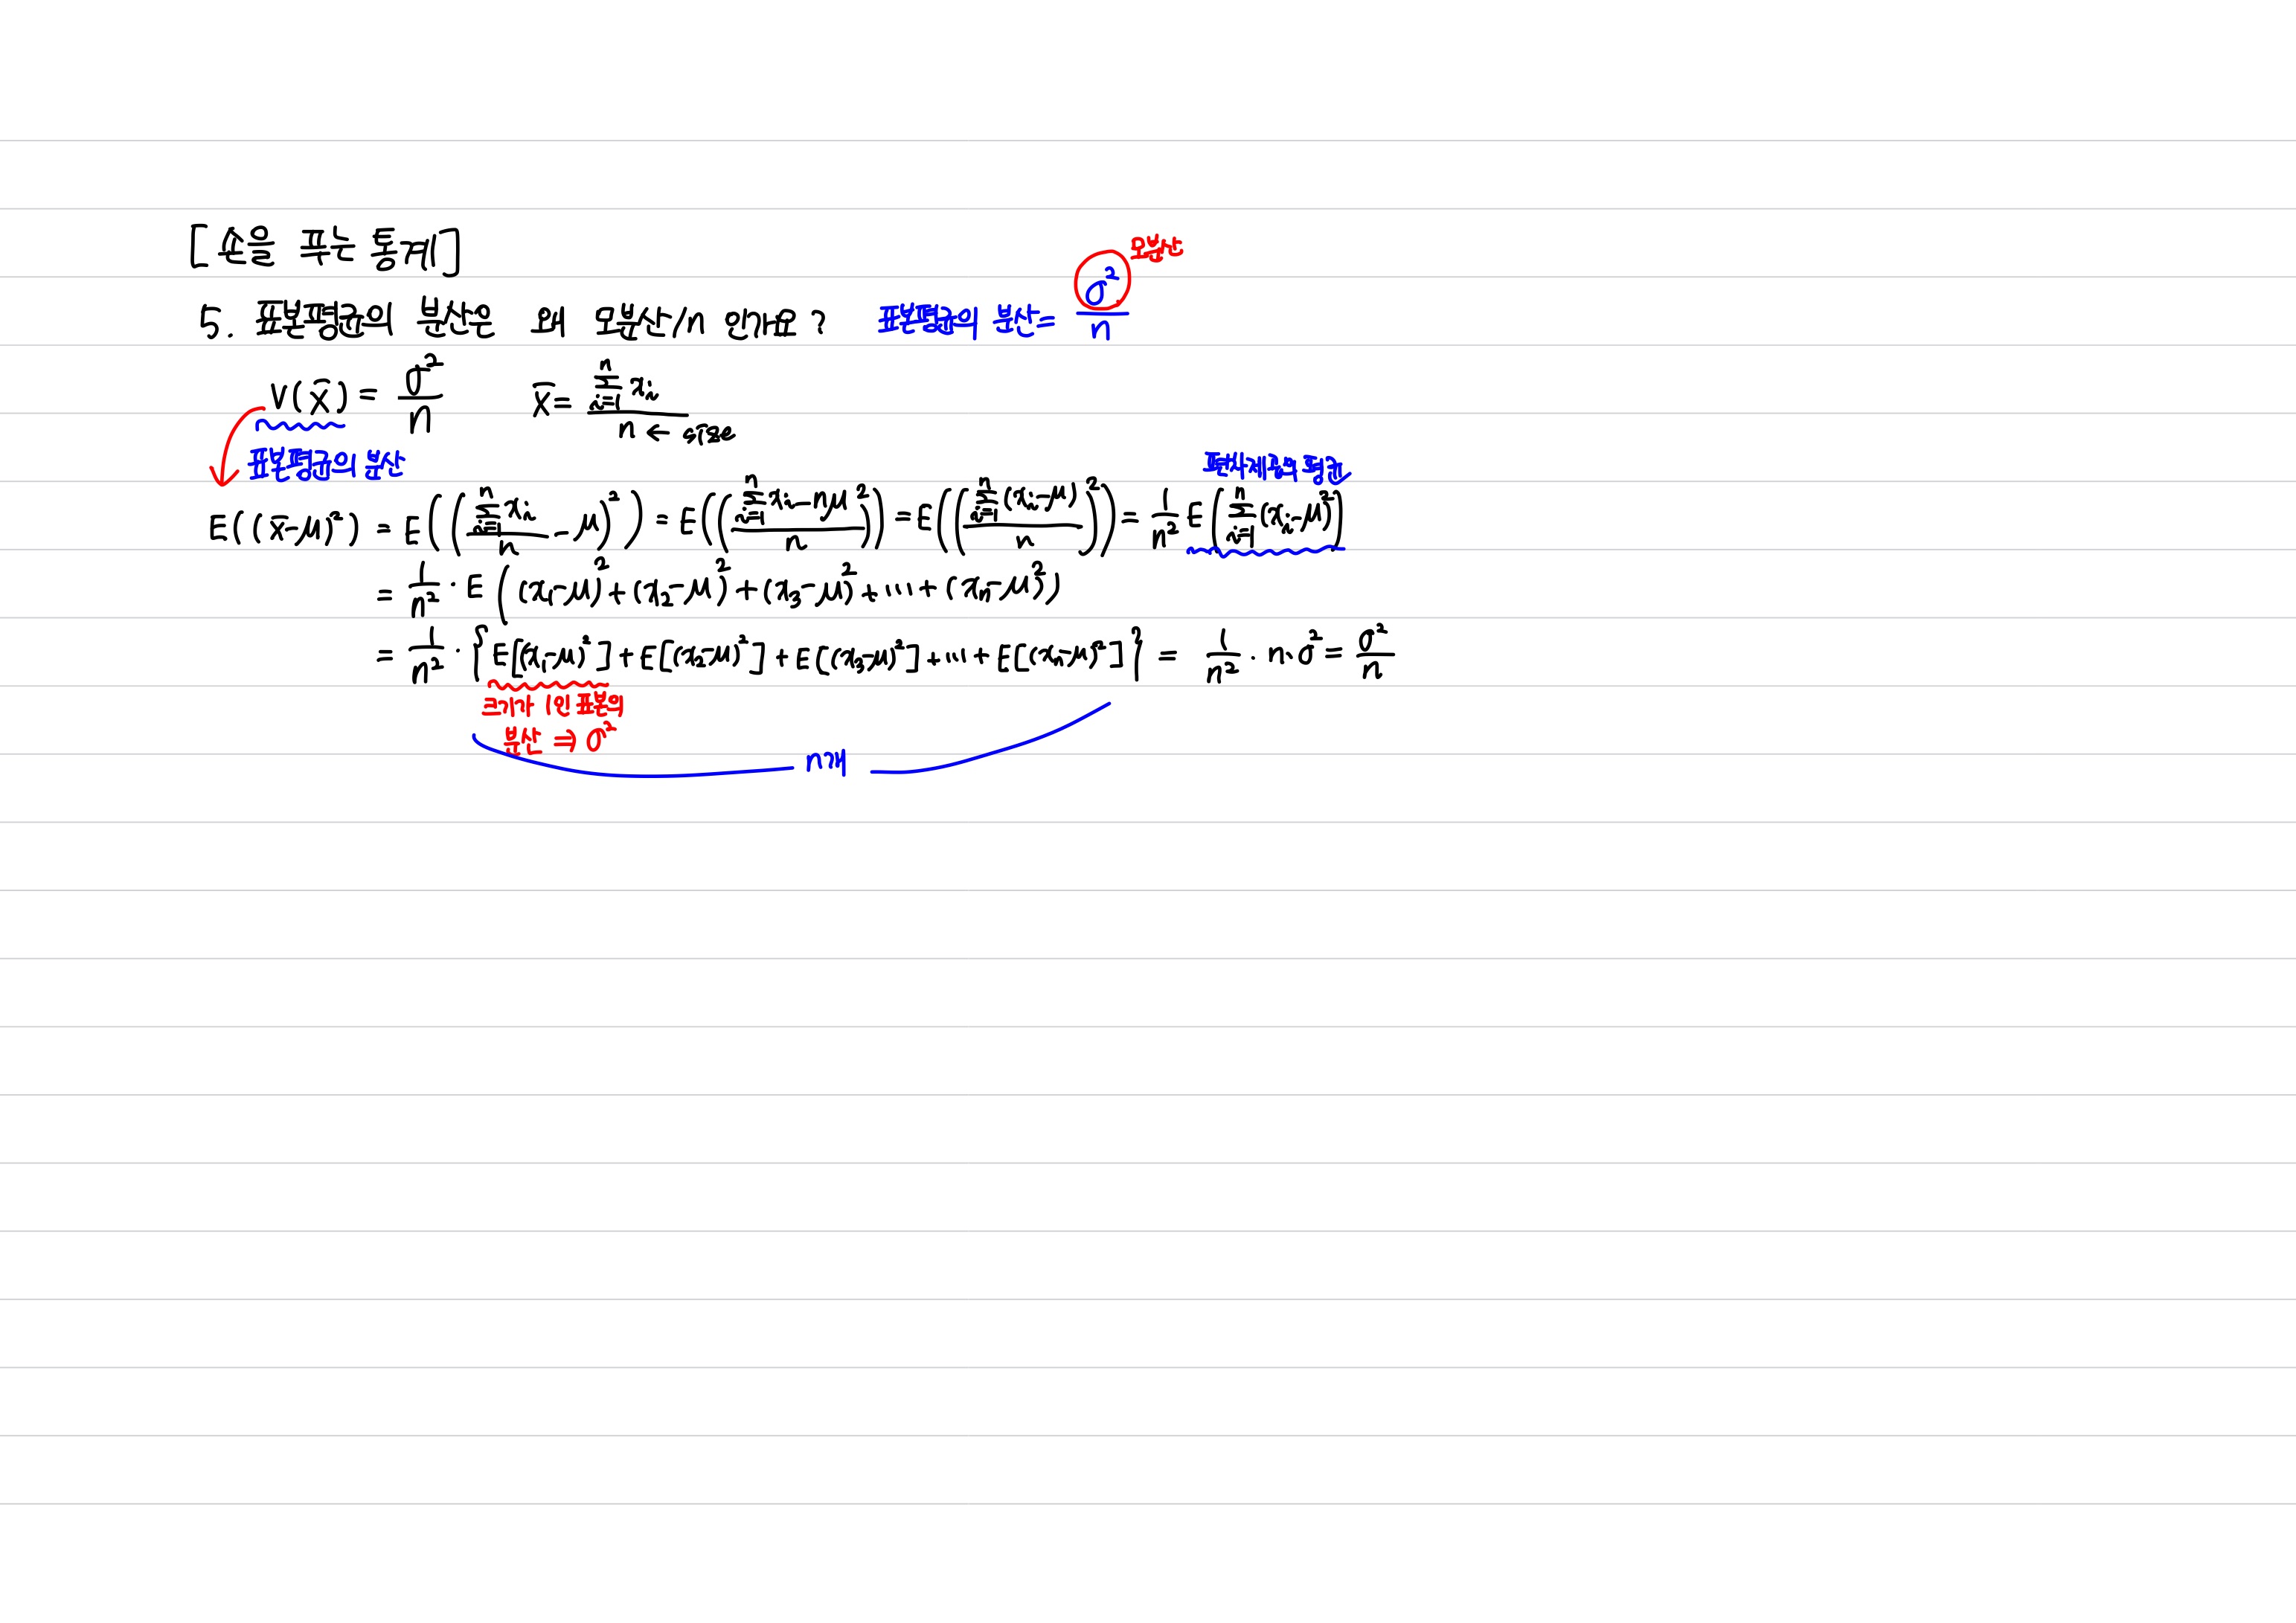 [손으로 푸는 통계]
5. 표본평균의 분산은 왜 모분산/n 인가요? 표본평균의 분산 = σ²/n 모분산
V(x̄) = σ²/n x̄ = Σ_{i=1}^{n} xᵢ / n ← size
표본평균의 분산
편차제곱의 평균
E((x̄-μ)²) = E((Σ_{i=1}^{n} xᵢ / n - μ)²) = E((Σ_{i=1}^{n} xᵢ - nμ / n)²) = E((Σ_{i=1}^{n} (xᵢ-μ) / n)²) = 1/n² E(Σ_{i=1}^{n} (xᵢ-μ)²)
= 1/n² · E((x₁-μ)² + (x₂-μ)² + (x₃-μ)² + ... + (xₙ-μ)²)
= 1/n² · {E[(x₁-μ)²] + E[(x₂-μ)²] + E[(x₃-μ)²] + ... + E[(xₙ-μ)²]} = 1/n² · n·σ² = σ²/n
크기가 1인 표본의
분산 ⇒ σ²
n개